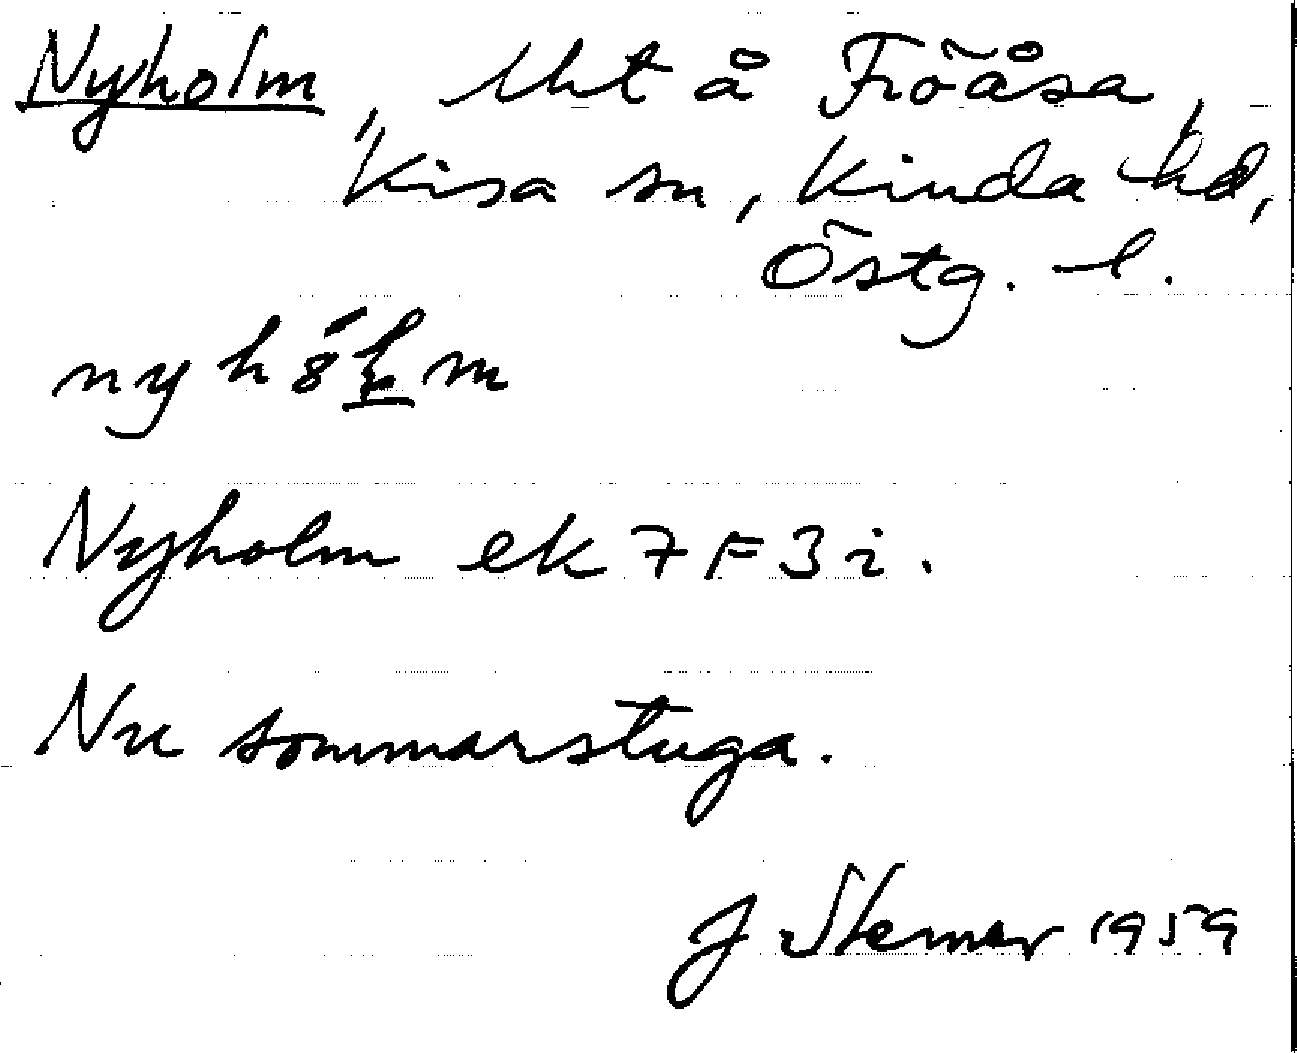 Nyholm, lht å Fröåsa,
Kisa sn, Kinda hd,
Östg. l.
nyhólm
Nyholm ek 7F3i.
Nu sommarstuga.
J Sterner 1959